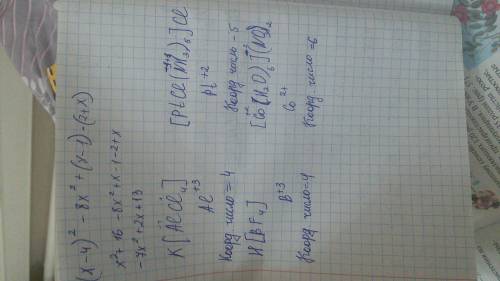 (x-4)² - 8x² + (x-1) - (2+x)
x² + 16 - 8x² + x - 1 - 2 + x
- 7x² + 2x + 13
K[AlCl₄]
Al⁺³
Коорд число = 4
H[BF₄]
B⁺³
Коорд. число = 4
[PtCl(NH₃)₅]Cl
Pt⁺²
Коорд число - 5
[Co(H₂O)₆](NO₃)₂
Co²⁺
Коорд. число = 6